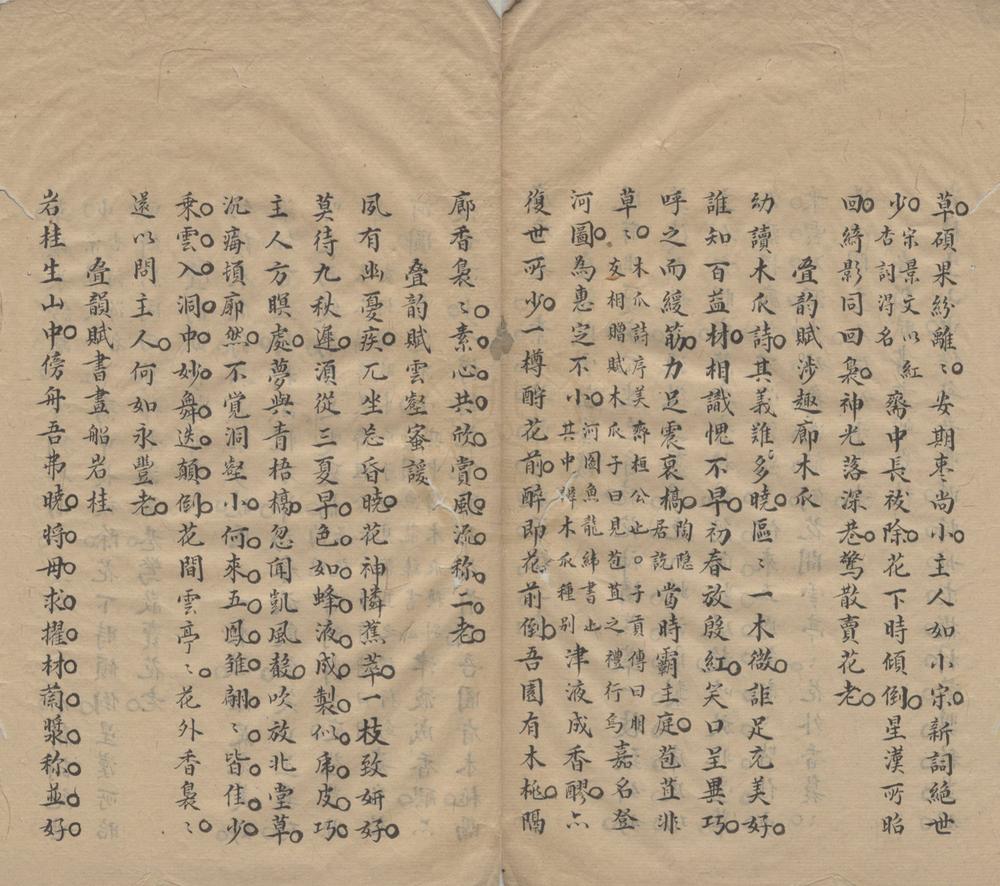 草碩果紛離〻安期枣尚小主人如小宋新詞絶世
少宋景文以紅杏詞得名齋中長袚除花下時傾倒星漢所昭
回綺影同回裊神光落深巷驚散賣花老
叠韵賦涉趣廊木瓜
幼讀木瓜詩其義誰多曉區〻一木微詎足充美好
誰知百益材相識愧不早初春放殷紅笑口呈異巧
呼之而緩筋力足震哀槁陶隐居説當時霸主庭苞苴非
草〻木瓜詩序美齊桓公止○子貢傳曰朋友相贈賦木瓜子曰見苞苴之禮行焉嘉名登
河圖為惠定不小河圖魚龍緯書止其中蹲木瓜種别津液成香醪亦
復世所少一樽酧花前醉即花前倒吾園有木桃隔
廊香裊〻素心共欣賞風流称二老
叠韵賦雲壑蜜諼
夙有幽憂疾兀坐忘昏曉花神憐蕉萃一枝致妍好
莫待九秋遲須從三夏早色如蜂液成製似虎皮巧
主人方瞑處夢與青梧槁忽聞凱風馥吹放北堂草
沉痗頓廓然不覺洞壑小何來五鳳雏翩〻皆佳少
乘雲入洞中妙舞迭顛倒花間雲亭〻花外香裊〻
還以問主人何如永豐老
叠韻賦書畫船岩桂
岩桂生山中傍舟吾弗曉將毋求擢材蘭槳称並好